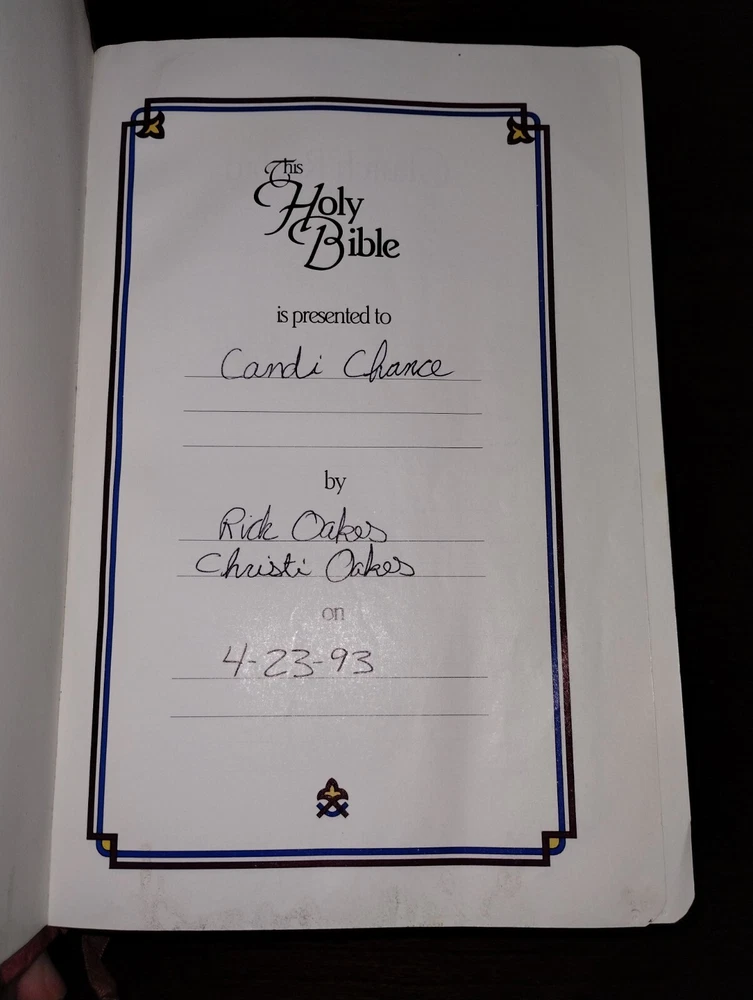 This
Holy
Bible
is presented to
Candi Chance
by
Rick Oakes
Christi Oakes
on
4-23-93